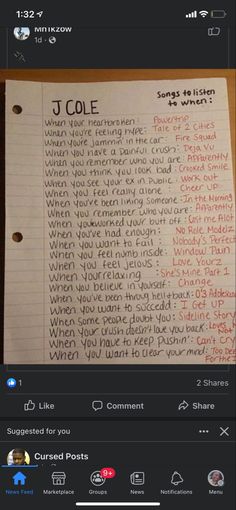 1:32
LTE
Mn1kzow
1d
J COLE
Songs to listen
to when:
When your heartbroken: Powertrip
When you're feeling hype: Tale of 2 Cities
When you're jammin' in the car: Fire Squad
When you have a painful crush: Deja Vu
When you remember who you are: Apparently
When you think you look bad: Crooked Smile
When you see your ex in public: Work Out
When you feel really alone: Cheer Up
When you've been liking someone: In the Morning
When you remember who you are: Apparently
When you worked your butt off: Lost me Alot
When you've had enough: No Role Modelz
When you want to fail: Nobody's Perfect
When you feel numb inside: Window Pain
When you feel jelous: Love Yourz
When your relaxing: She's Mine Part 1
When you believe in yourself: Change
When you've been throug hell+back: 03 Adolescen
When you want to succedd: I Get UP
When some people doubt you: Sideline Story
When your crush doesn't love you back: Loves Not
When you have to keep pushin': Can't Cry
When you want to clear your mind: Too Deep
For the I
1
2 Shares
Like
Comment
Share
Suggested for you
Cursed Posts
9+
News Feed
Marketplace
Groups
News
Notifications
Menu